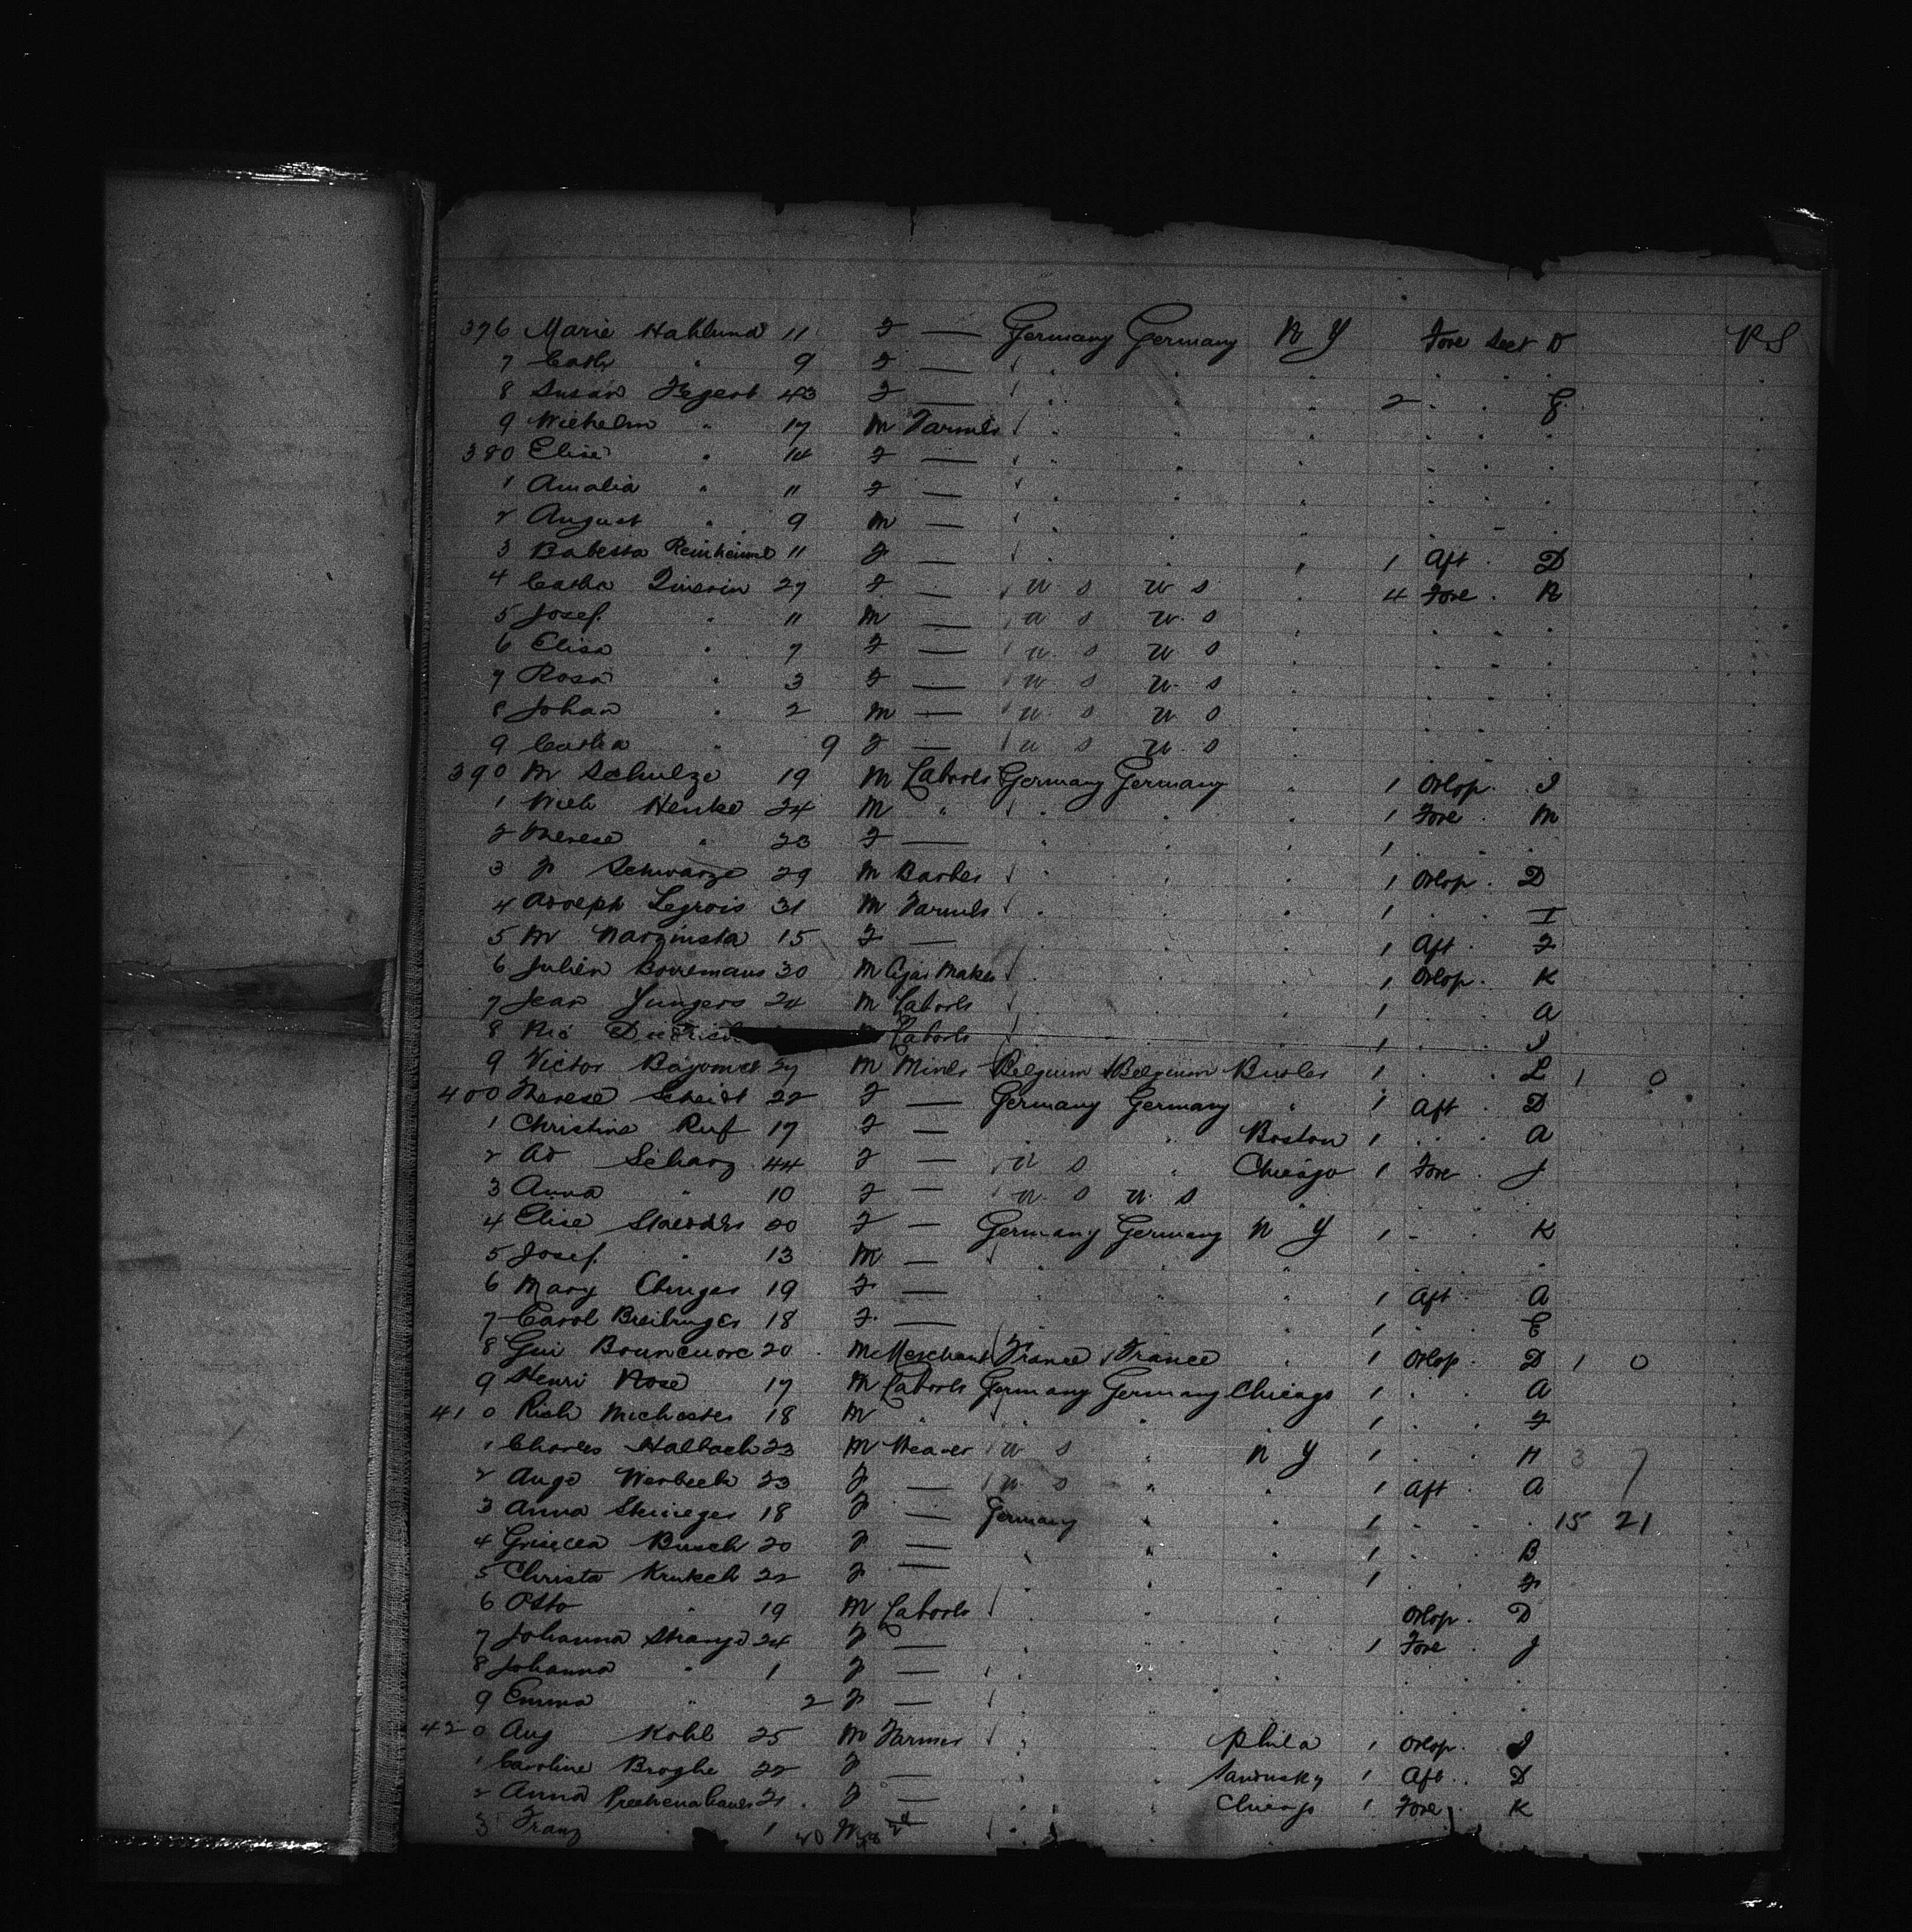 376 Marie Hahlund 11 F — Germany Germany N Y Fore Sect D P.S
7 Cath " 9 F — " " " " " "
8 Susan Fegert 43 F — " " " 2 " "
9 Wilhelm " 17 M Farmer " " " " " "
380 Elise " 14 F — " " " " " "
1 Amalia " 11 F — " " " " " "
2 August " 9 M — " " " " " "
3 Babetta Reinheimer 11 F — " " " 1 Aft " D
4 Catha 27 F — U S U S " 4 Fore "
5 Josef " 11 M — U S U S " " " "
6 Elisa " 7 F — U S U S " " " "
7 Rosa " 3 F — U S U S " " " "
8 Johan " 2 M — U S U S " " " "
9 Catha " 9 F — U S U S " " " "
390 M Schulze 19 M Laborer Germany Germany " 1 Orlop "
1 Wilh Henke 24 M " " " " 1 Fore " M
2 Therese " 23 F — " " " 1 " " "
3 Schwarze 29 M Barber " " " 1 Orlop " D
4 Adolph Legrois 31 M Farmer " " " 1 " " I
5 M Narzinsta 15 F — " " " 1 Aft " F
6 Julien Bouremans 30 M Cigar Maker " " " 1 Orlop " K
7 Jean Jungers 24 M Laborer " " " 1 " " A
8 Laborer " " " 1 " "
9 Victor 27 M Miner Belgium Belgium Butler 1 " " L 1 0
400 Therese Scheidt 22 F — Germany Germany " 1 Aft " D
1 Christine Ruf 17 F — " " Boston 1 " " A
2 Ad Scharz 44 F — U S " Chicago 1 Fore " J
3 Anna " 10 F — U S U S " "
4 Elise 20 F — Germany Germany N Y 1 " " K
5 Josef " 13 M — " " " " " "
6 Mary Clinger 19 F — " " " 1 Aft " A
7 Carol 18 F — " " " 1 " " E
8 Gui 20 M Merchant France France " 1 Orlop " D 1 0
9 Henri Rose 17 M Laborer Germany Germany Chicago 1 " " A
410 Rich 18 M " " " " 1 " " F
1 Charles Halbach 23 M Weaver U S " N Y 1 " " H 3 7
2 Augo Werbeck 23 F — U S " " 1 Aft " A
3 Anna 18 F — Germany " " 1 " " " 15 21
4 Busch 20 F — " " " 1 " " B
5 Christa Krukeh 22 F — " " " 1 " " F
6 Otto " 19 M Laborer " " " Orlop " D
7 Johanna Strange 24 F — " " " 1 Fore " J
8 Johanna " 1 F — " " " " " "
9 Emma " 2 F — " " " " " "
420 Aug Kohl 25 M Farmer " " Phila 1 Orlop "
1 Caroline Broghe 22 F — " " Sandusky 1 Aft " D
2 Anna 21 F — " " Chicago 1 Fore " K
3 Franz 1